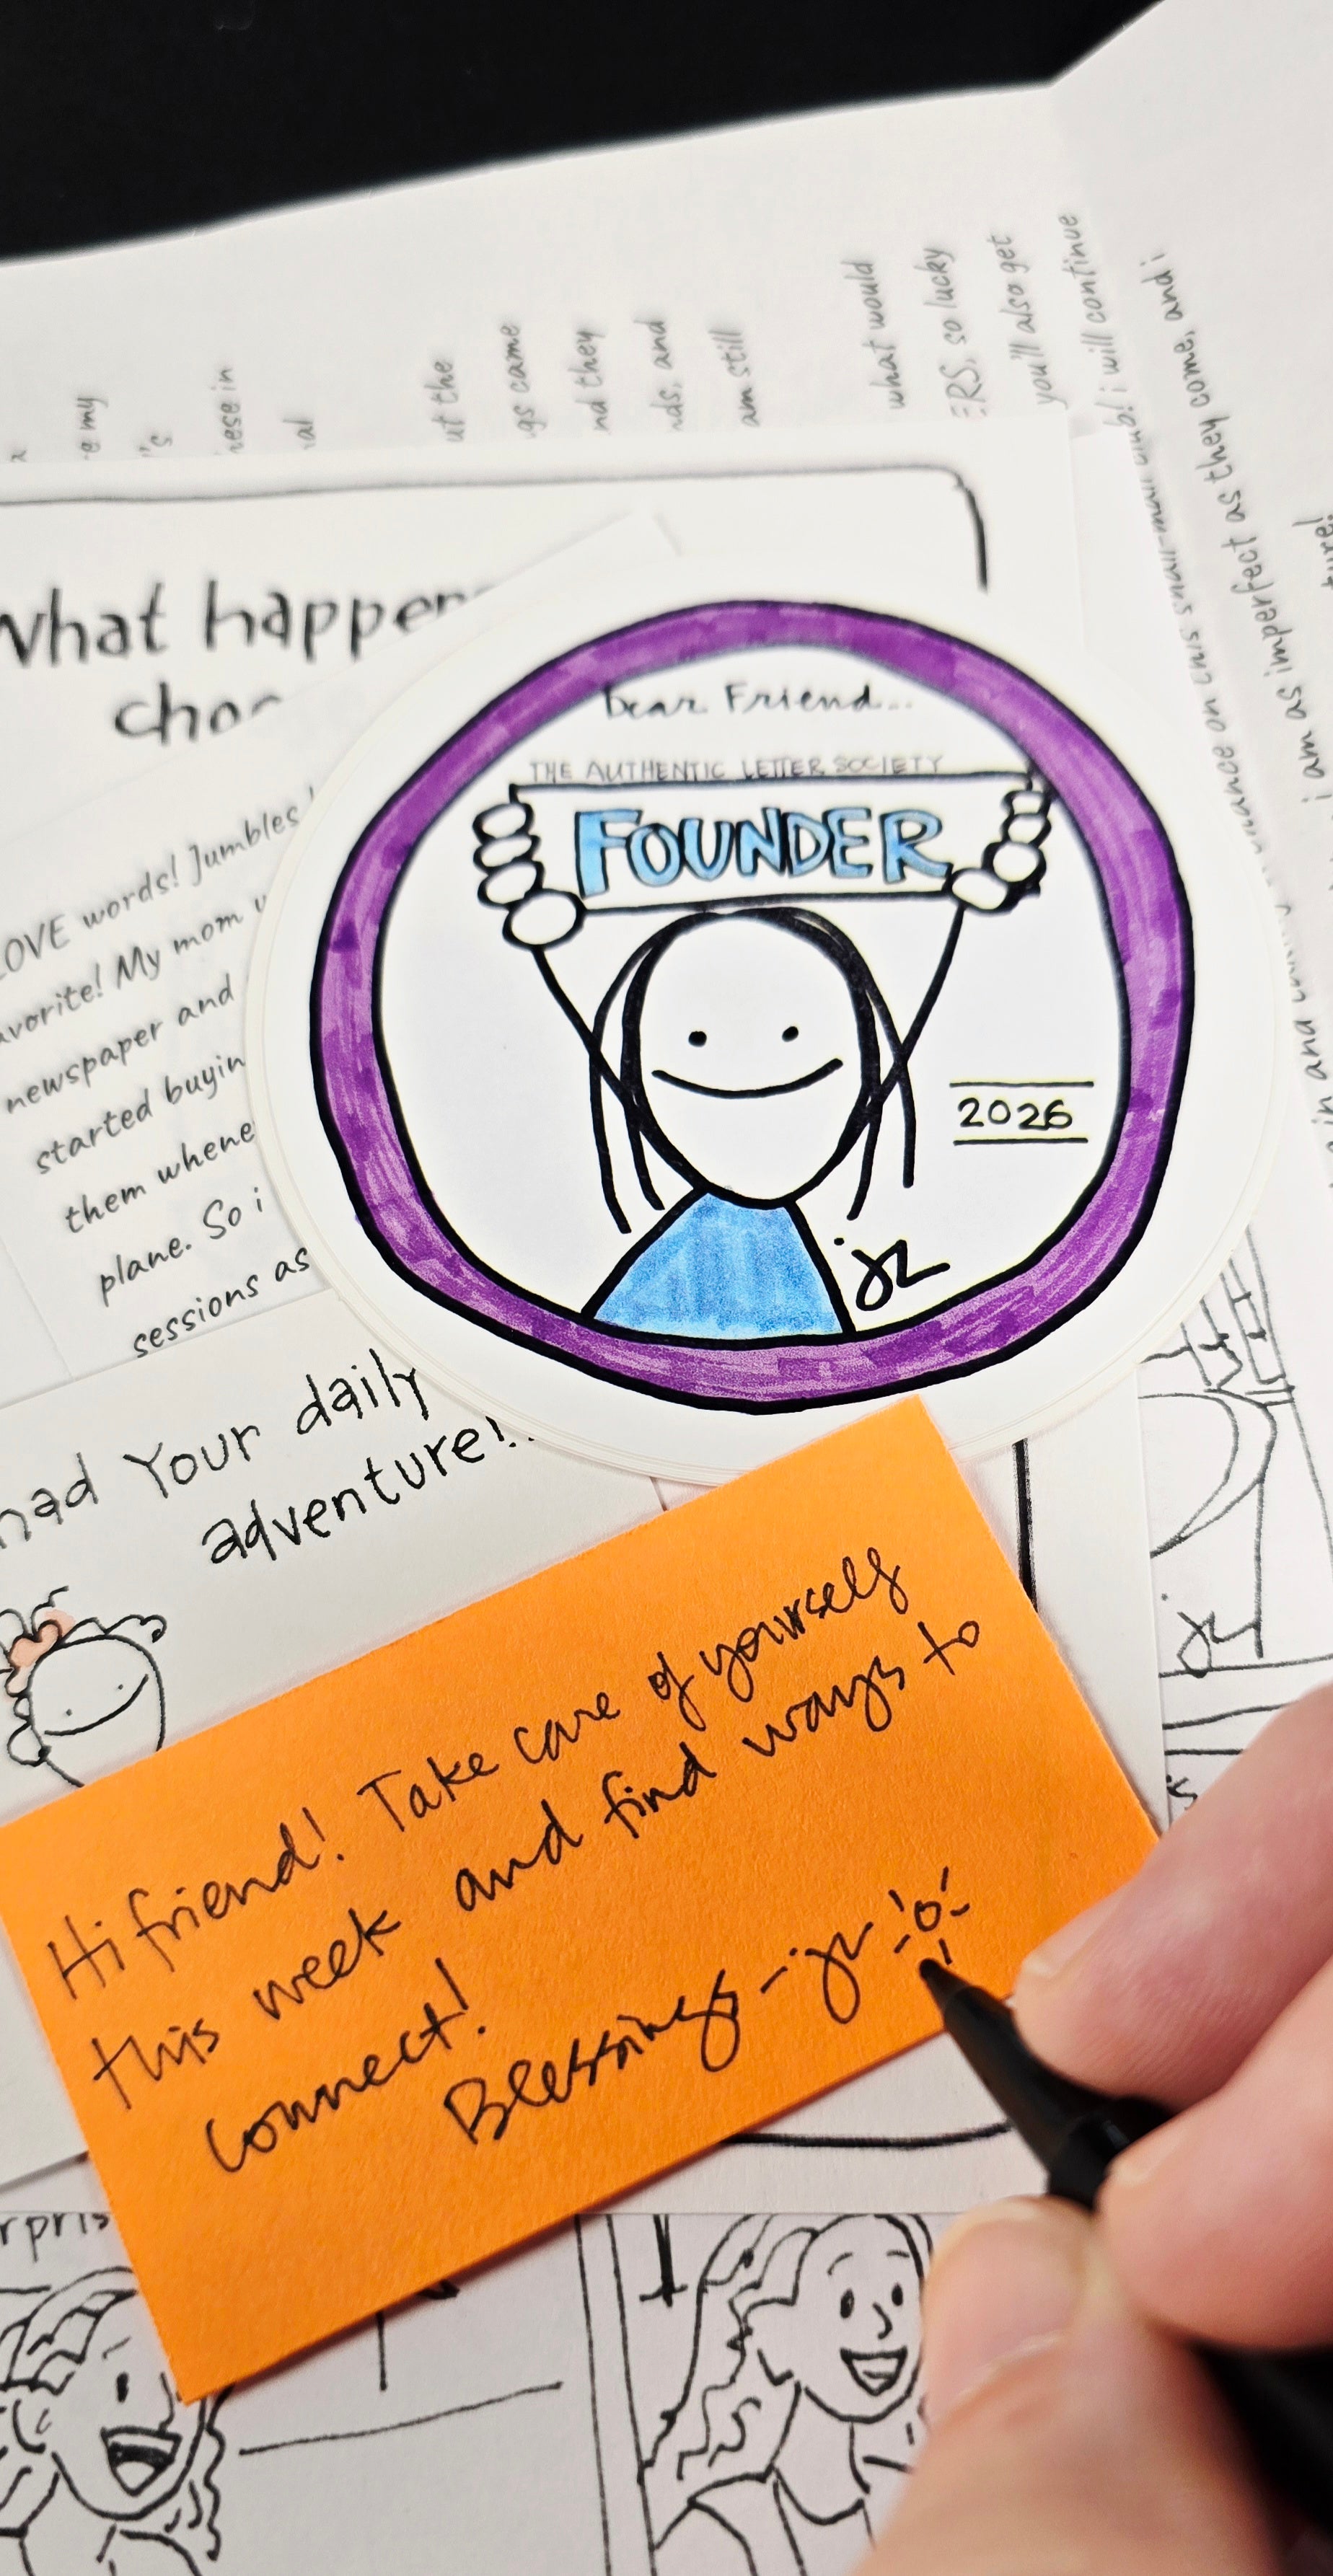 what would
ERS, so lucky
you'll also get
i will continue
ut the
gs came
nd they
nds, and
am still
e my
's
hese in
al
i am as imperfect as they come, and i
What happen
choo
LOVE words! Jumbles
avorite! My mom
newspaper and
started buyin
them whene
plane. So i
sessions as
Dear Friend...
THE AUTHENTIC LETTER SOCIETY
FOUNDER
2026
jz
had Your daily
adventure!
jz
Hi friend! Take care of yourself
this week and find ways to
connect!
Blessings, -jz
rpris